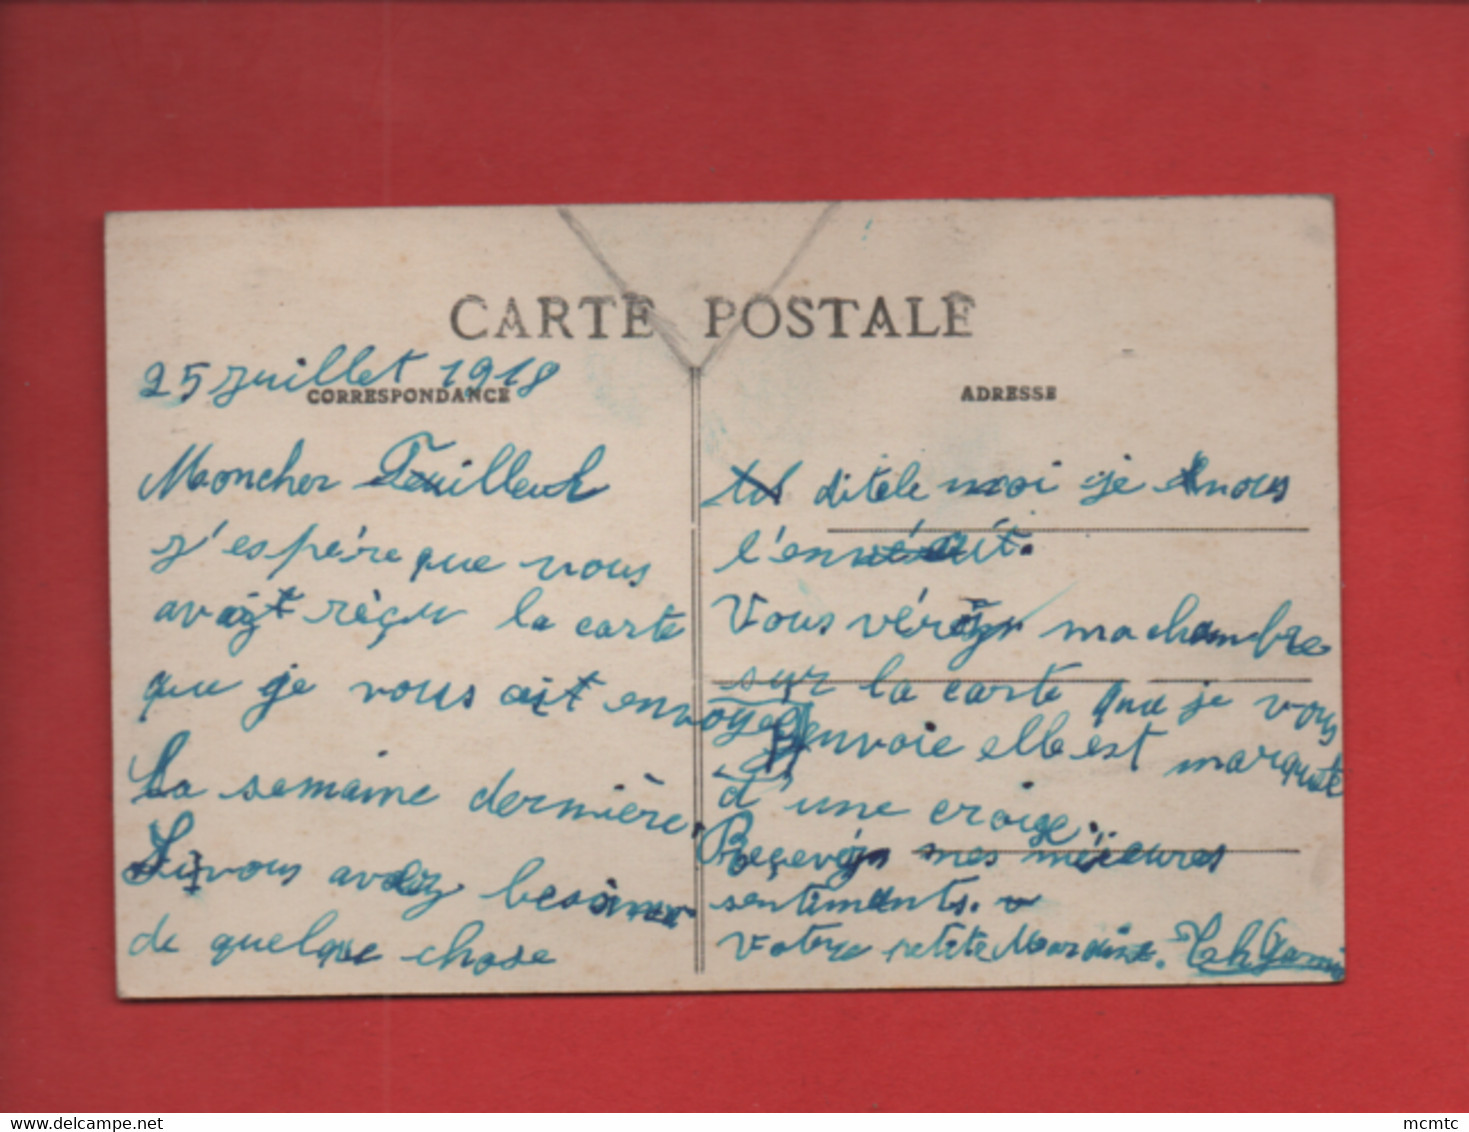 CARTE POSTALE
25 juillet 1918
CORRESPONDANCE
Moncher Feuilleul
j'espère que vous
avait rèçu la carte
que je vous ait envoyé
La semaine dernière.
Si vous avez besoin
de quelque chose
ADRESSE
ditele moi je vous
l'enverait.
Vous véréz ma chambre
sur la carte que je vous
envoie elle est marquée
d'une croix.
Reçevéz mes méieures
sentiments.
Votre petite Marraine.
www.delcampe.net
mcmtc